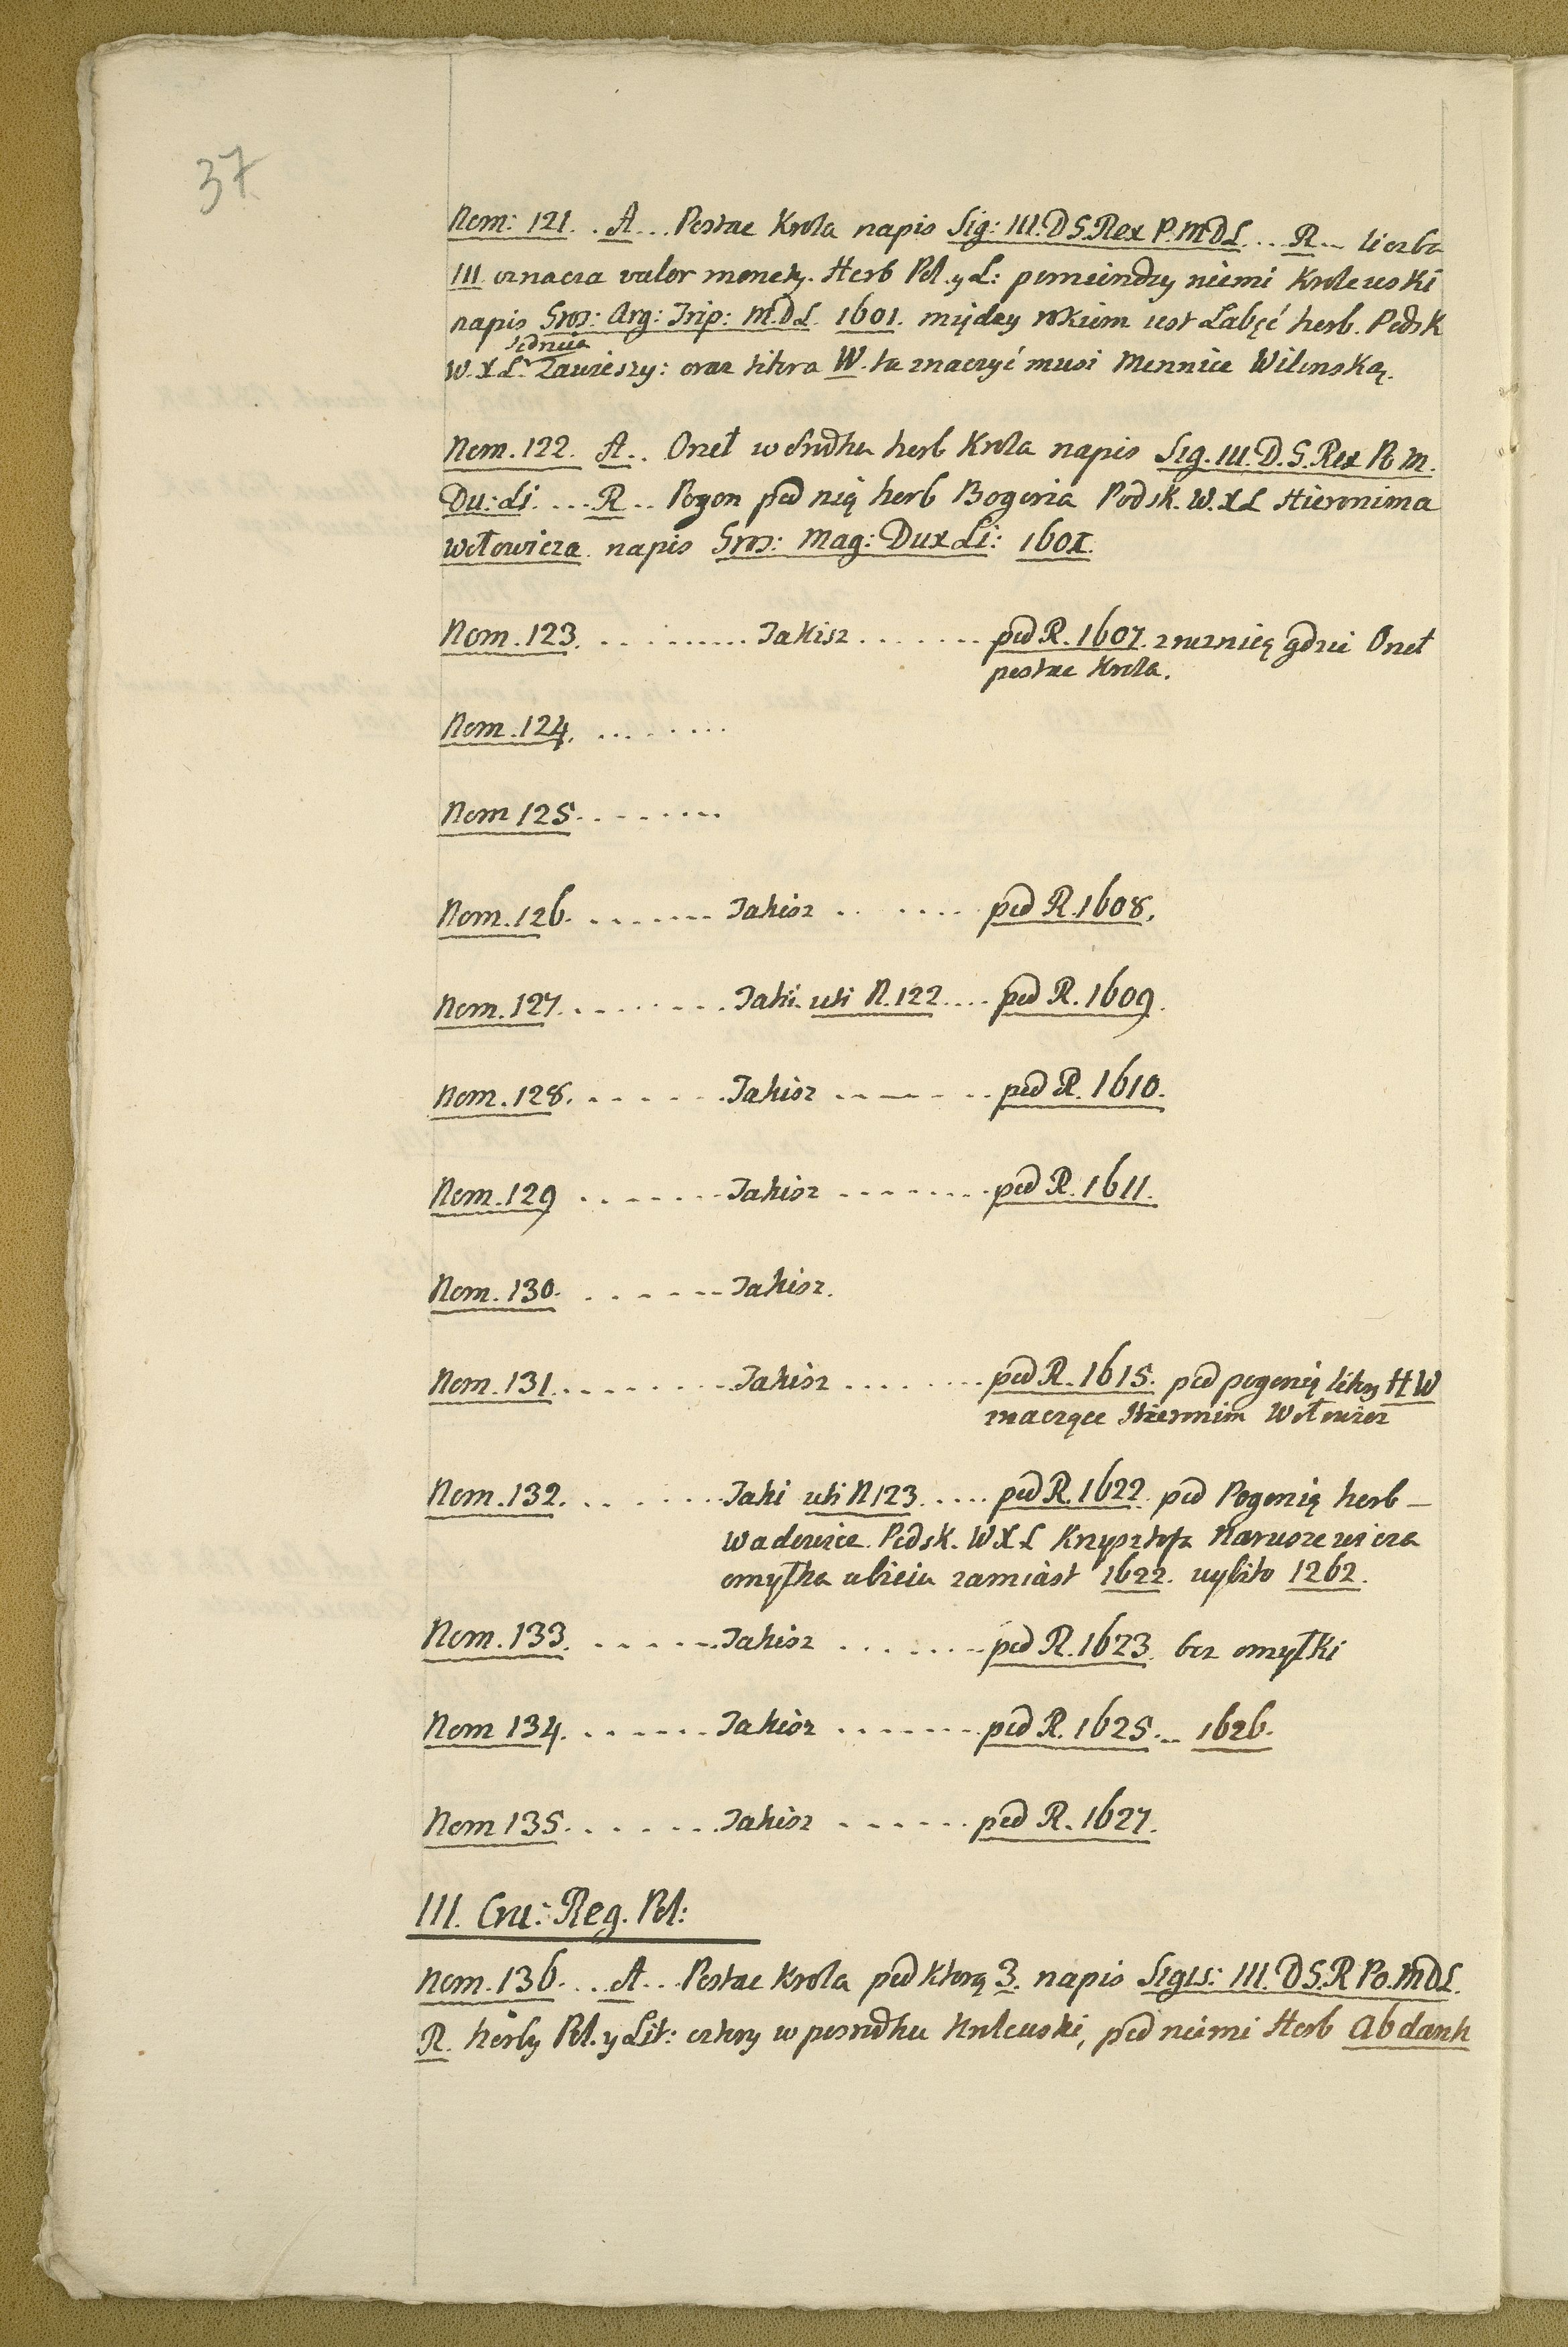 37
Nom: 121. . A... Postac Krola napis Sig: III. D S. Rex P. M D L... R... liczba
III oznacza valor monety. Herb Pol. y L: pomiendzy niemi Krolewski
napis Gros: Arg: Trip: M. D L. 1601. między rokiem iest Łabęć herb. Podsk
W. X L. Zawieszy: oraz litera W. ta znaczyć musi Mennice Wilenską.
Nom. 122. A.. Orzeł w srodku herb Krola napis Sig. III. D. S. Rex Po M.
Du: Li. ... R.. Pogon pod nią herb Bogoria Podsk. W. X L Hieronima
Wołowicza napis Gros: Mag: Dux Li: 1601.
Nom. 123. .......... Takisz ....... pod R. 1607. z roznicą gdzie Orzeł
postac Krola.
Nom. 124. ........
Nom 125. .......
Nom. 126. ....... Takisz ....... pod R. 1608.
Nom. 127. ........ Taki uti N. 122.... pod R. 1609.
Nom. 128. ...... Takisz ....... pod R. 1610.
Nom. 129 ....... Takisz ........ pod R. 1611.
Nom. 130. ...... Takisz.
Nom. 131. ........ Takisz ........ pod R. 1615. pod pogonią litery H W
znaczące Hieronim Wołowicz
Nom. 132. ....... Taki uti N 123. .... pod R. 1622. pod Pogonią herb –
Wadwice. Podsk. W X L Krzysztofa Naruszewicza
omyłka w biciu zamiast 1622. wybito 1262.
Nom. 133. ...... Takisz ........ pod R. 1623. bez omyłki
Nom 134. ...... Takisz ....... pod R. 1625... 1626.
Nom 135. ...... Takisz ...... pod R. 1627.
III. Cru: Reg. Pol:
Nom. 136. ... A... Postac Krola pod ktorą 3. napis Sigis: III. D S. R Po. M D L.
R. herby Pol. y Lit: cztery w posrodku Krolewski, pod niemi Herb Abdank